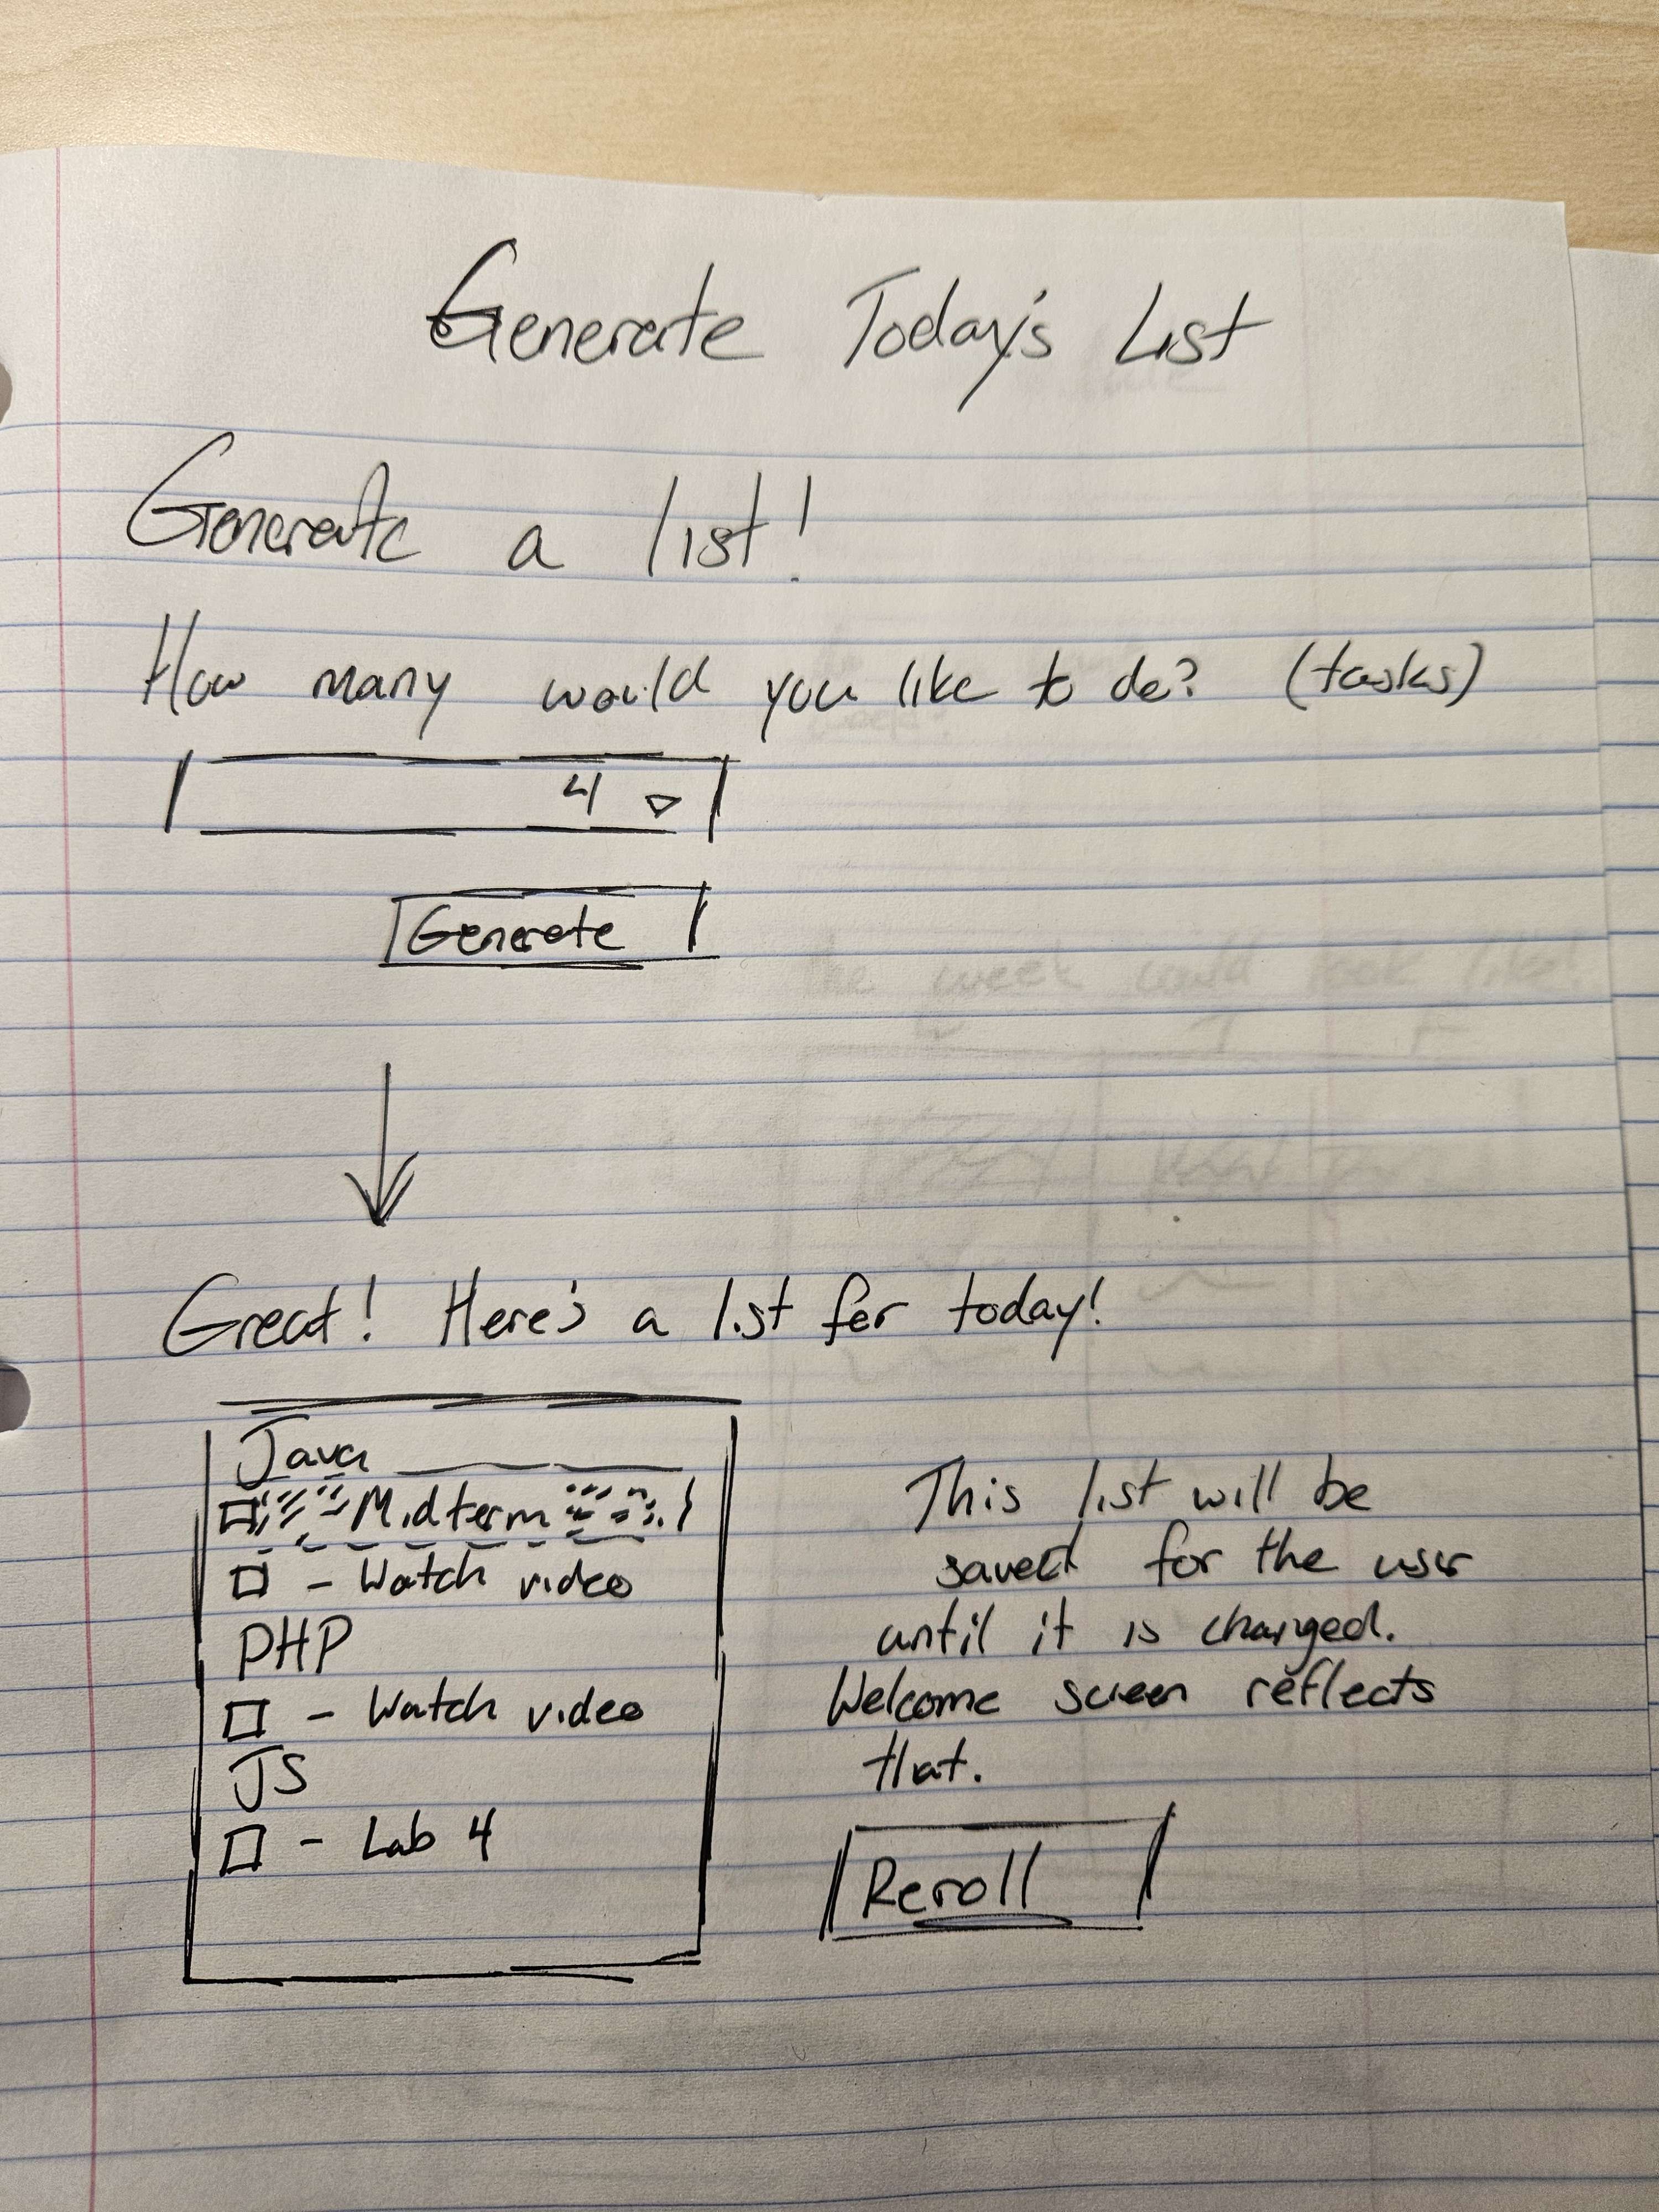 Generate Today's List
Generate a list!
How many would you like to do? (tasks)
4
Generate
Great! Here's a list for today!
Java
Midterm
- Watch video
PHP
- Watch video
JS
- Lab 4
This list will be
saved for the user
until it is changed.
Welcome screen reflects
that.
Reroll
the week could look like!